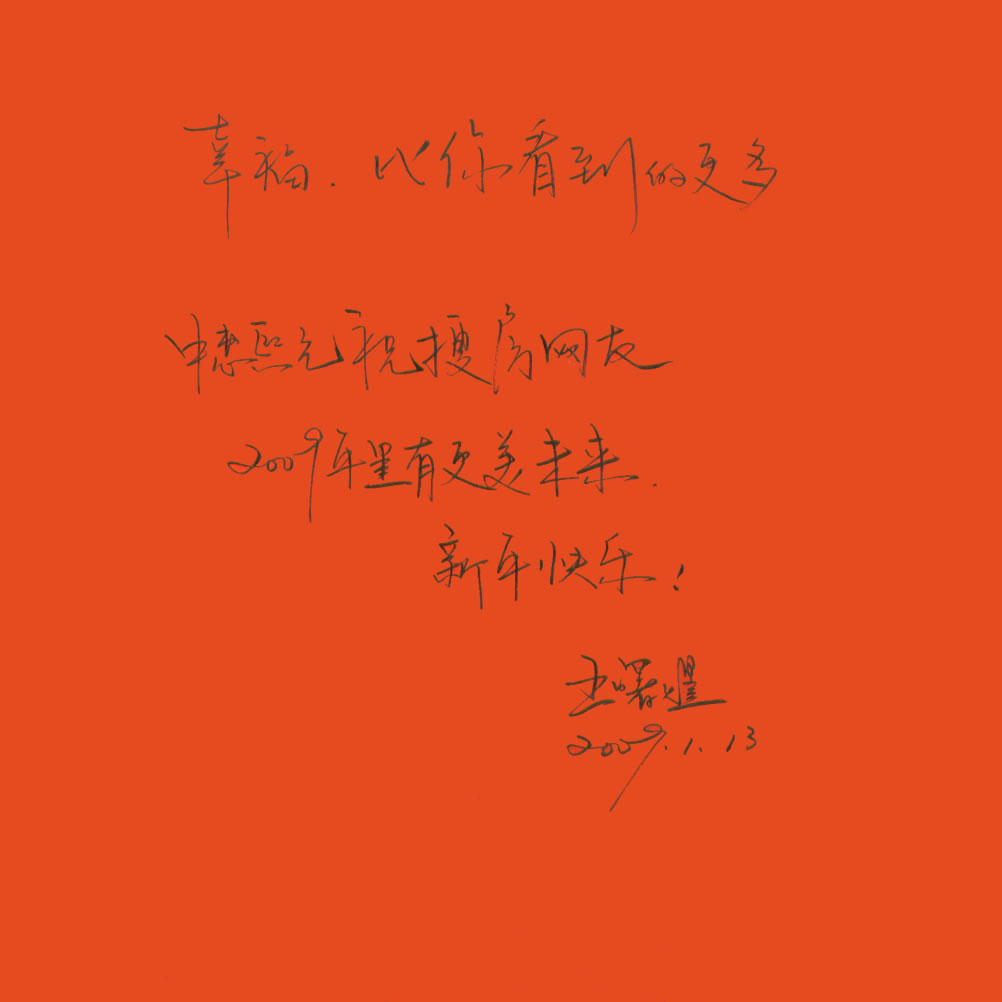 幸福.比你看到的更多
中惠熙元祝搜房网友
2009年里有更美未来.
新年快乐!
王曙煋
2009.1.13